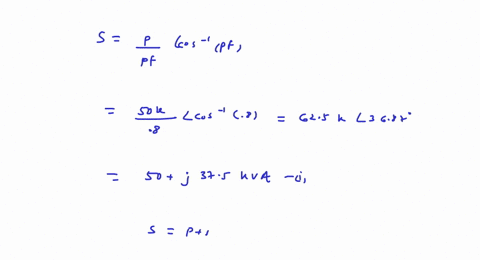 S = P/pf ∠cos⁻¹(pf)
= 50k/.8 ∠cos⁻¹(.8) = 62.5 k ∠36.87°
= 50 + j 37.5 kVA –①
S = P+